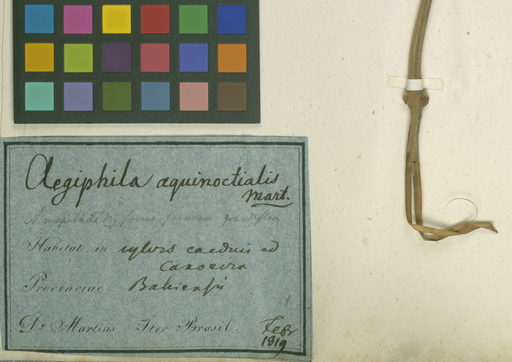 Aegiphila aquinoctialis
Mart.
Habitat in sylvis caeduis ad
Caxoeira
Provinciae Bahiensis
Dr. Martius Iter Brasil. Febr
1819